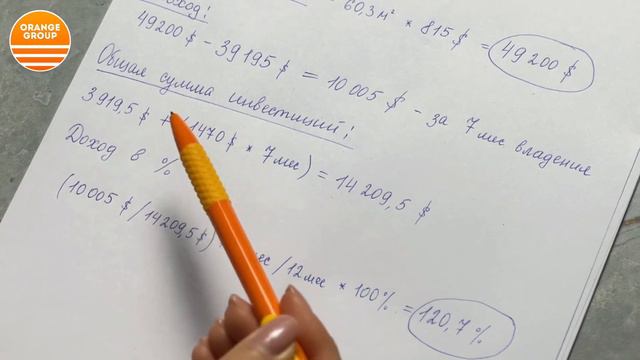 ORANGE
GROUP
60,3 м² * 815 $ = 49 200 $
49200 $ - 39195 $ = 10 005 $ - за 7 мес владения
Общая сумма инвестиций:
3919,5 $ + 1470 $ * 7 мес) = 14 209,5 $
Доход в %
(10 005 $ / 14 209,5 $) / 12 мес * 100 % = 120,7 %